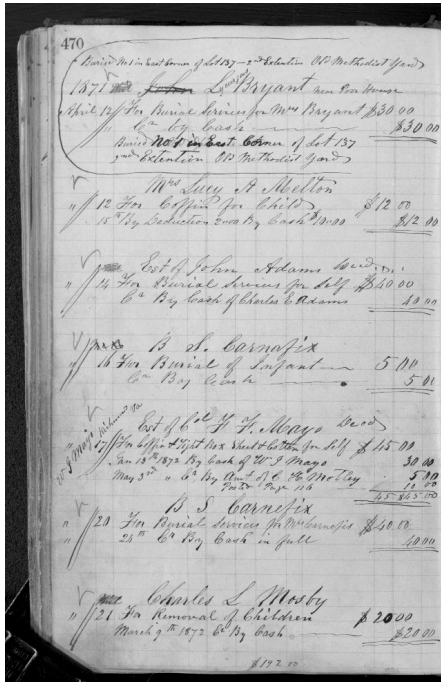 470
Buried No 1 in East Corner of Lot 137 - 2nd Extention Old Methodist Yard
1871 John L Bryant near Poor House
April 12 For Burial Services for Mrs Bryant $30 00
" Cr by Cash $30 00
Buried No 1 in East Corner of Lot 137
2nd Extention Old Methodist Yard
Mrs Lucy A Melton
" 12 For Coffin for Child $12 00
15th By Deduction 2 00 By Cash $10 00 $12 00
Est of John Adams Decd
" 14 For Burial Services for Self $40 00
Cr By Cash of Charles E Adams 40 00
B S. Carnefix
" 16 For Burial of Infant 5 00
Cr By Cash 5 00
W J Mayo Richmond Va
Est of Col F. F. Mayo Decd
" 17 For Coffin & Tight Box Sheet & Cotton for Self $45 00
Jan 13th 1872 By Cash of W J Mayo 30 00
May 3rd " Cr By Amt of C H Motley 5 00
Page 116 10 00
45 $45 00
B S. Carnefix
" 20 For Burial Services for Mrs Carnefix $40 00
24th Cr By Cash in full 40 00
Charles L Mosby
" 21 For Removal of Children $20 00
March 9th 1872 Cr By Cash $20 00
$192 00